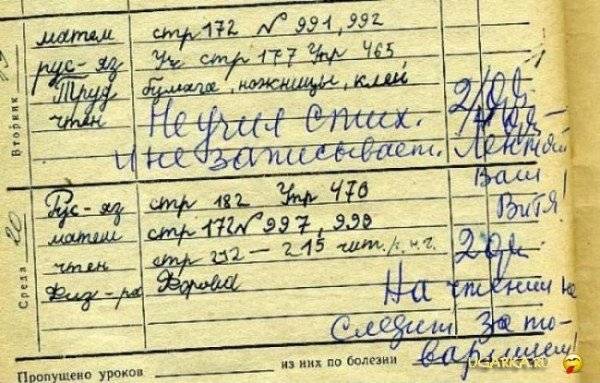 Вторник
матем стр 172 № 991, 992
рус-яз Уч стр 177 Упр 465
Труд бумага, ножницы, клей
чтен Не учил стих.
и не записывает. Лентяй
Ваш
Витя!
Среда 20
Рус-яз стр 182 Упр 470
матем стр 172 № 997, 998
чтен стр 212 – 215 чит.
Физ-ра Форма
На чтении не
следит за то-
варищем!
Пропущено уроков из них по болезни